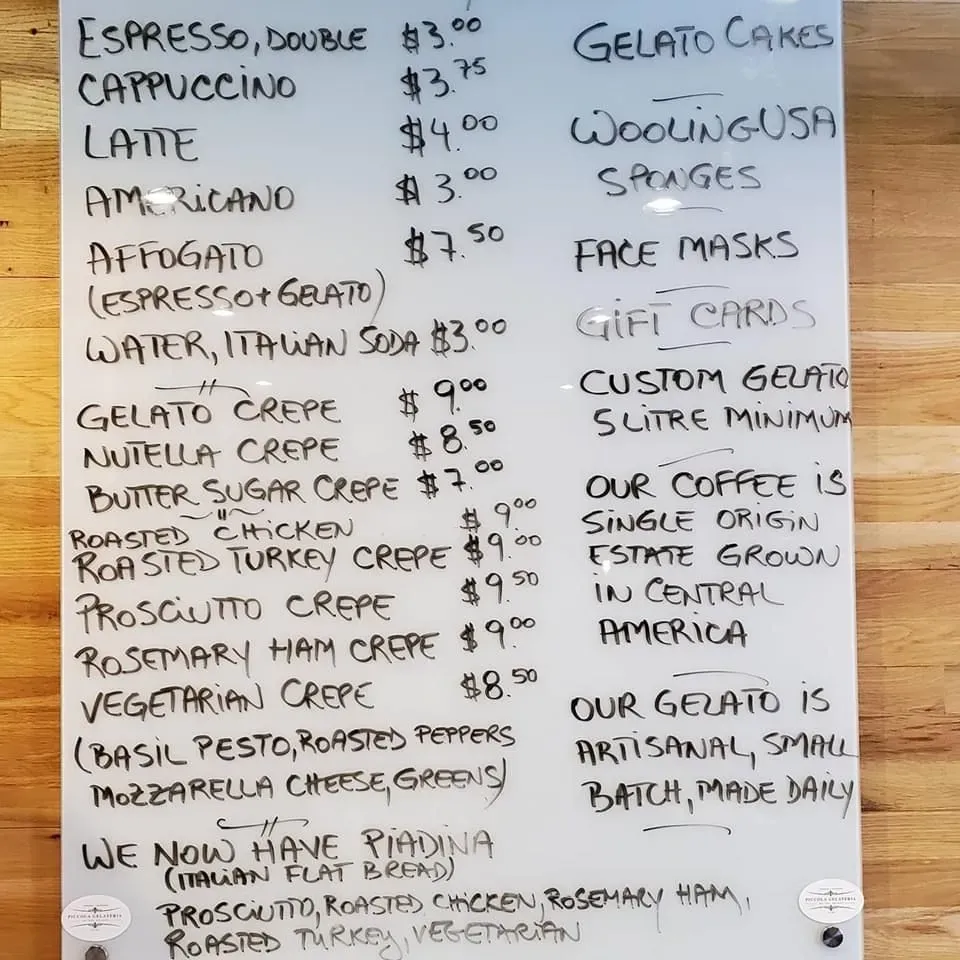 ESPRESSO, DOUBLE $3.00
CAPPUCCINO $3.75
LATTE $4.00
AMERICANO $3.00
AFFOGATO $7.50
(ESPRESSO + GELATO)
WATER, ITALIAN SODA $3.00
GELATO CREPE $9.00
NUTELLA CREPE $8.50
BUTTER SUGAR CREPE $7.00
ROASTED CHICKEN $9.00
ROASTED TURKEY CREPE $9.00
PROSCIUTTO CREPE $9.50
ROSEMARY HAM CREPE $9.00
VEGETARIAN CREPE $8.50
(BASIL PESTO, ROASTED PEPPERS
MOZZARELLA CHEESE, GREENS)
WE NOW HAVE PIADINA
(ITALIAN FLAT BREAD)
PROSCIUTTO, ROASTED CHICKEN, ROSEMARY HAM,
ROASTED TURKEY, VEGETARIAN
GELATO CAKES
WOOLINGUSA
SPONGES
FACE MASKS
GIFT CARDS
CUSTOM GELATO
5 LITRE MINIMUM
OUR COFFEE IS
SINGLE ORIGIN
ESTATE GROWN
IN CENTRAL
AMERICA
OUR GELATO IS
ARTISANAL, SMALL
BATCH, MADE DAILY
PICCOLA GELATERIA
PICCOLA GELATERIA